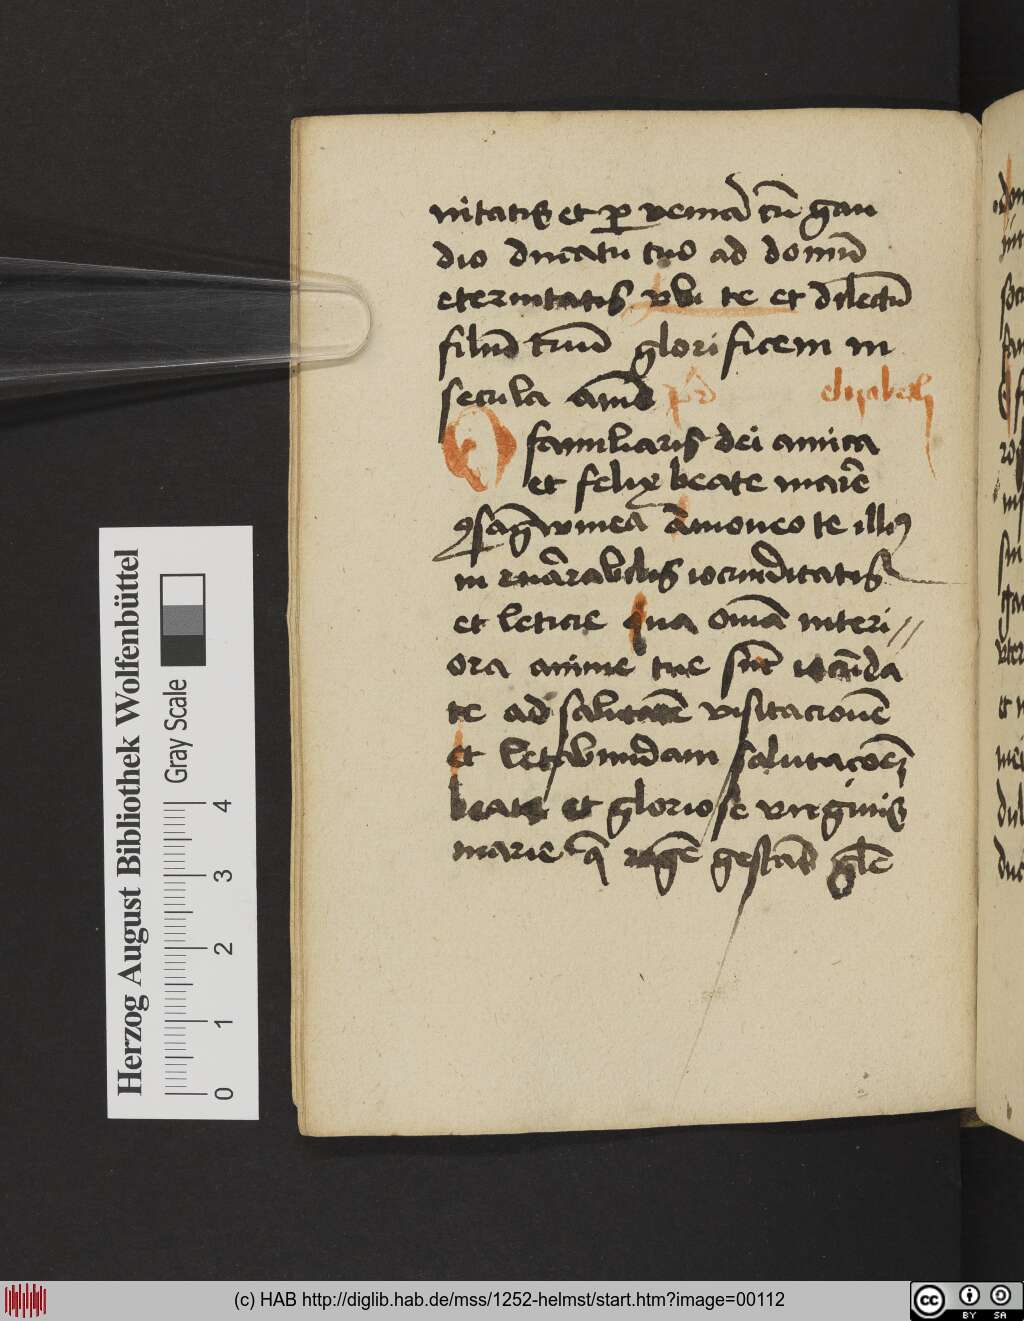 nitatis et p veniā cū gau
dio ducatu tuo ad domū
eternitatis vbi te et dilectū
filiū tuū glorificem in
secula amē elyzabeth
O familiaris dei amica
et felix beate marie
ꝯsāgwinea Amoneo te illiꝯ
in enarrabilis iocunditatis
et leticie qua omīa interi//
ora anime tue sūt iocūda
te ad salutatē visitacionē
et letabundam salutacōem
beate et gloriose virginis
marie q̄ gestās
Herzog August Bibliothek Wolfenbüttel
Gray Scale
0 1 2 3 4
(c) HAB http://diglib.hab.de/mss/1252-helmst/start.htm?image=00112
cc BY SA